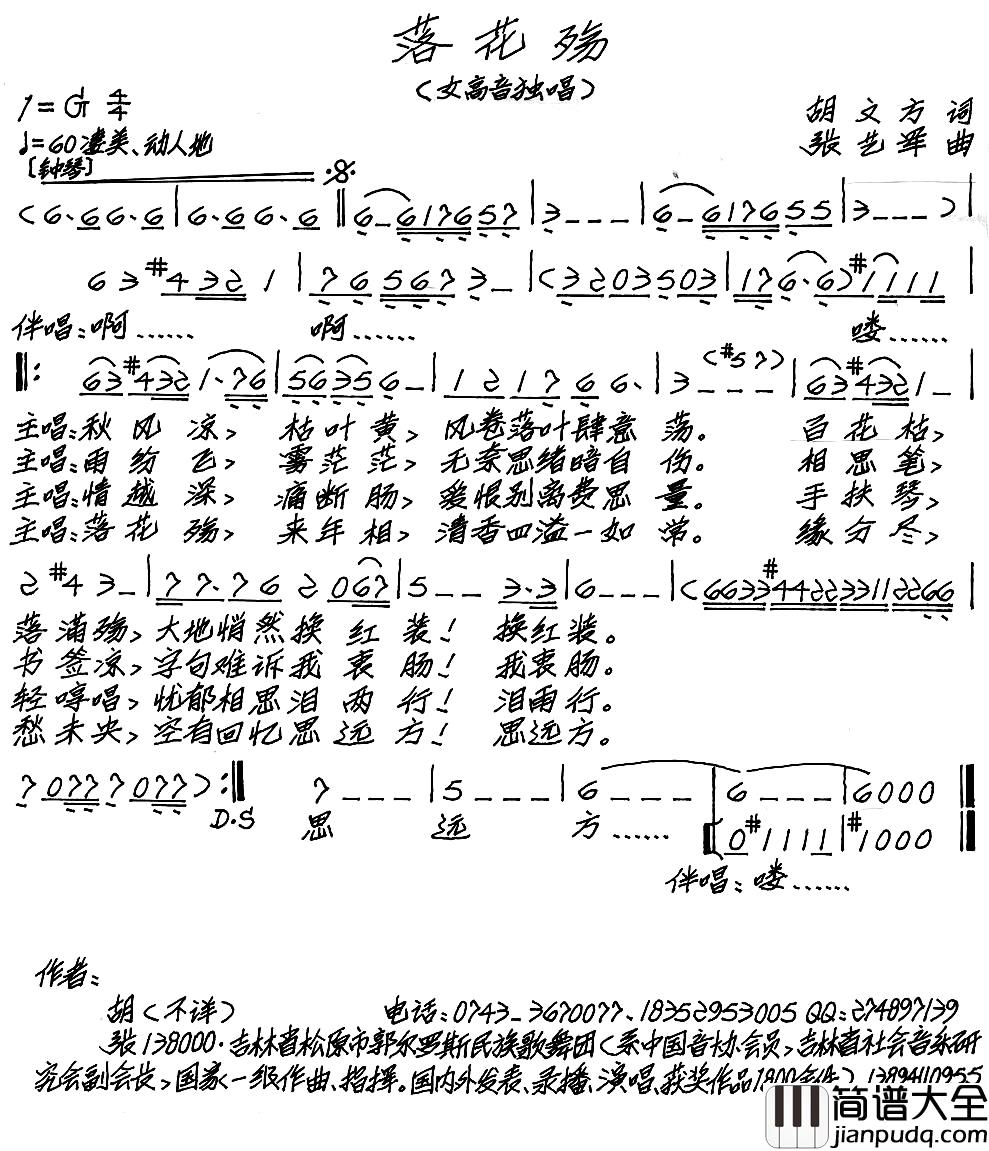 落花殇
（女高音独唱）
1=G 4/4
胡文方 词
♩=60 凄美、动人地
张艺军 曲
[钟琴]
(6·66·6|6·66·6‖6-617657|3---|6-617655|3---)|
63#4321|765673-|(3203503|176·6)#1111|
伴唱:啊…… 啊…… 喽……
‖:63#4321·76|563566-|121766·|3---(#57)|63#4321-|
主唱:秋风凉, 枯叶黄, 风卷落叶肆意荡。 百花枯,
主唱:雨纷飞, 雾茫茫, 无奈思绪暗自伤。 相思笔,
主唱:情越深, 痛断肠, 爱恨别离费思量。 手扶琴,
主唱:落花殇, 来年相, 清香四溢一如常。 缘分尽,
2#43-|77·762067|5--3·3|6---|(6633#442233112266|
落满殇, 大地悄然换红装! 换红装。
书签凉, 字句难诉我衷肠! 我衷肠。
轻哼唱, 忧郁相思泪两行! 泪两行。
愁未央, 空有回忆思远方! 思远方。
70777077):‖7---|5---|6---|6---|6000‖
D.S 思 远 方……
0#1111|#1000
伴唱:喽……
作者:
胡(不详) 电话:0743-3670077、18352953005 QQ:274897139
张138000·吉林省松原市郭尔罗斯民族歌舞团(系中国音协会员,吉林省社会音乐研
究会副会长,国家一级作曲、指挥。国内外发表、录播、演唱、获奖作品1800余件)
简谱大全
jianpudq.com